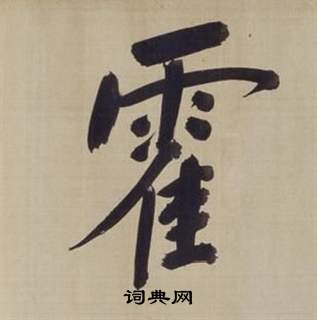 霍
词典网